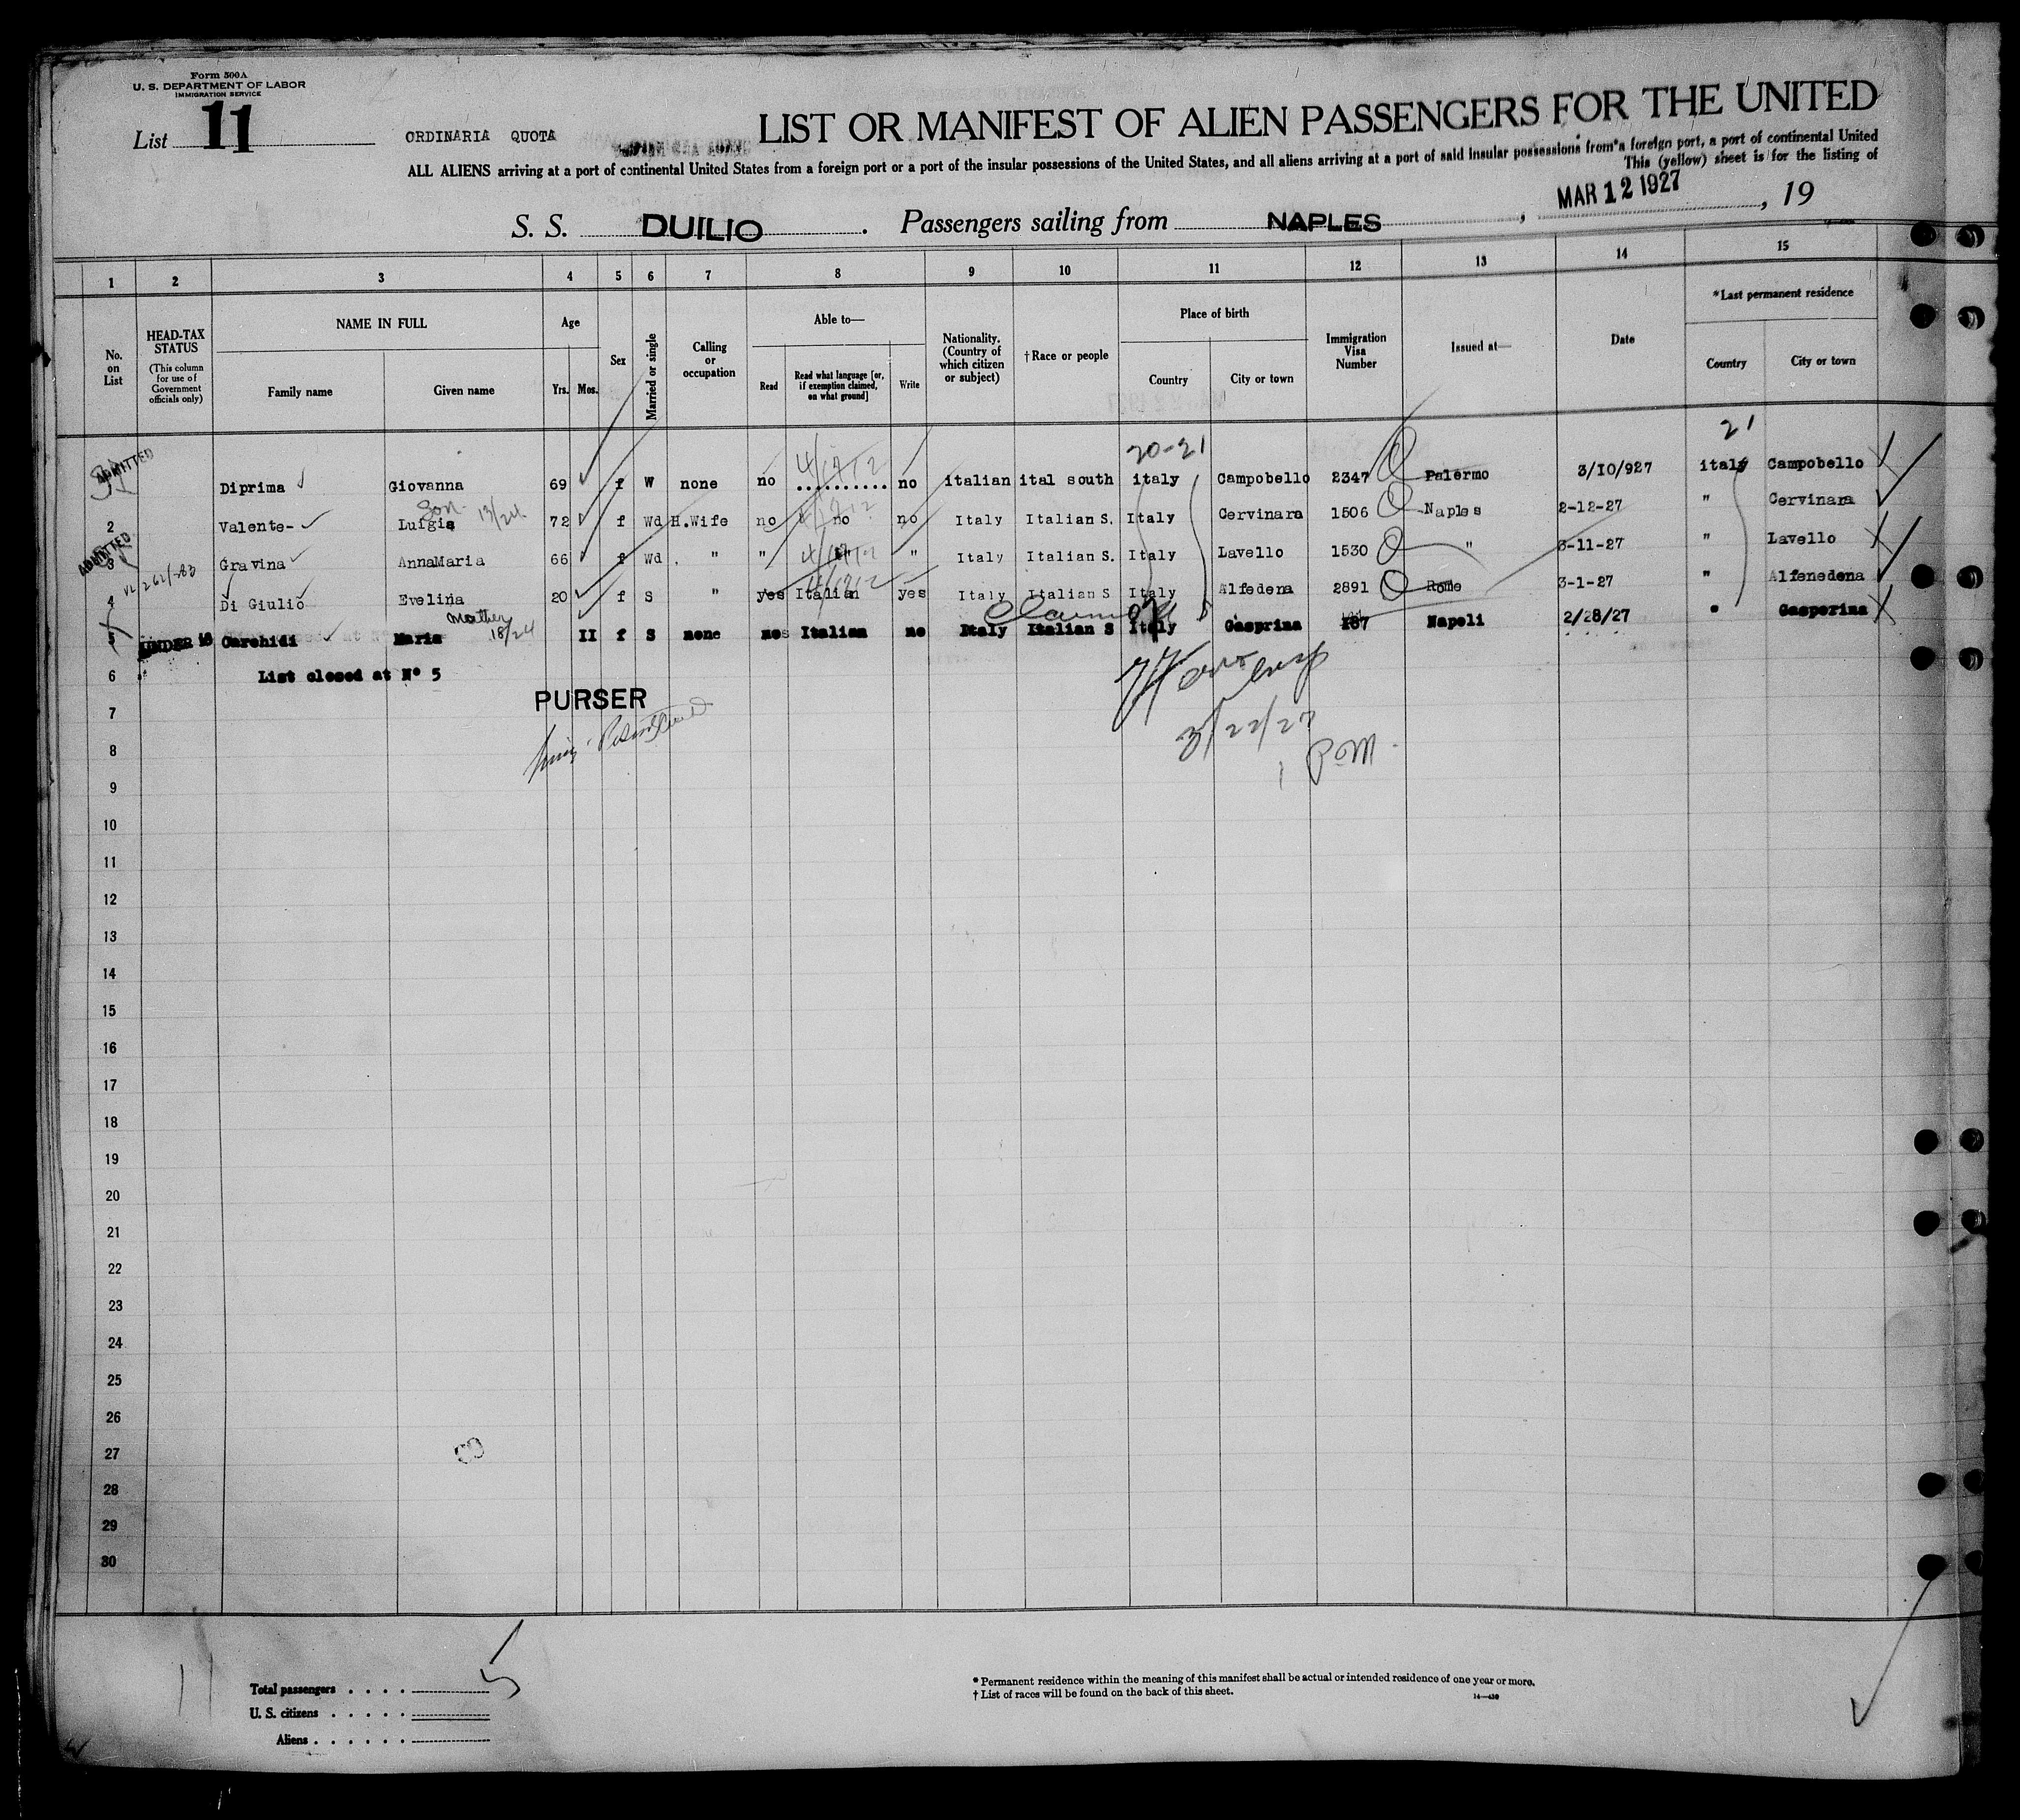 Form 500A
U. S. DEPARTMENT OF LABOR
IMMIGRATION SERVICE
List 11
ORDINARIA QUOTA
LIST OR MANIFEST OF ALIEN PASSENGERS FOR THE UNITED
ALL ALIENS arriving at a port of continental United States from a foreign port or a port of the insular possessions of the United States, and all aliens arriving at a port of said insular possessions from a foreign port, a port of continental United
This (yellow) sheet is for the listing of
S. S. DUILIO. Passengers sailing from NAPLES, MAR 12 1927, 19
1 2 3 4 5 6 7 8 9 10 11 12 13 14 15
No. on List
HEAD-TAX STATUS
(This column for use of Government officials only)
NAME IN FULL
Family name
Given name
Age
Yrs. Mos.
Sex
Married or single
Calling or occupation
Able to—
Read
Read what language [or, if exemption claimed, on what ground]
Write
Nationality. (Country of which citizen or subject)
†Race or people
Place of birth
Country
City or town
Immigration Visa Number
Issued at—
Date
*Last permanent residence
Country
City or town
20-21
21
ADMITTED Diprima Giovanna 69 f W none no .......... no italian ital south italy Campobello 2347 Palermo 3/10/927 italy Campobello
Son 13/24
2 Valente- Luigia 72 f Wd H.Wife no no no Italy Italian S. Italy Cervinara 1506 Naples 2-12-27 " Cervinara
ADMITTED 3 Gravina AnnaMaria 66 f Wd. " " " " Italy Italian S. Italy Lavello 1530 " 3-11-27 " Lavello
4 Di Giulio Evelina 20 f S " yes Italian yes Italy Italian S Italy Alfedena 2891 Rome 3-1-27 " Alfenedena
Mother 18/24
5 UNDER 16 Carehidi Maria II f S none no Italian no Italy Italian S Italy Gasprina 187 Napoli 2/28/27 " Gasperina
6 List closed at N° 5
PURSER
7
3/22/27
8
9
10
11
12
13
14
15
16
17
18
19
20
21
22
23
24
25
26
27
28
29
30
Total passengers . . . . 5
U. S. citizens . . . . .
Aliens . . . . . .
* Permanent residence within the meaning of this manifest shall be actual or intended residence of one year or more.
† List of races will be found on the back of this sheet.
14—430